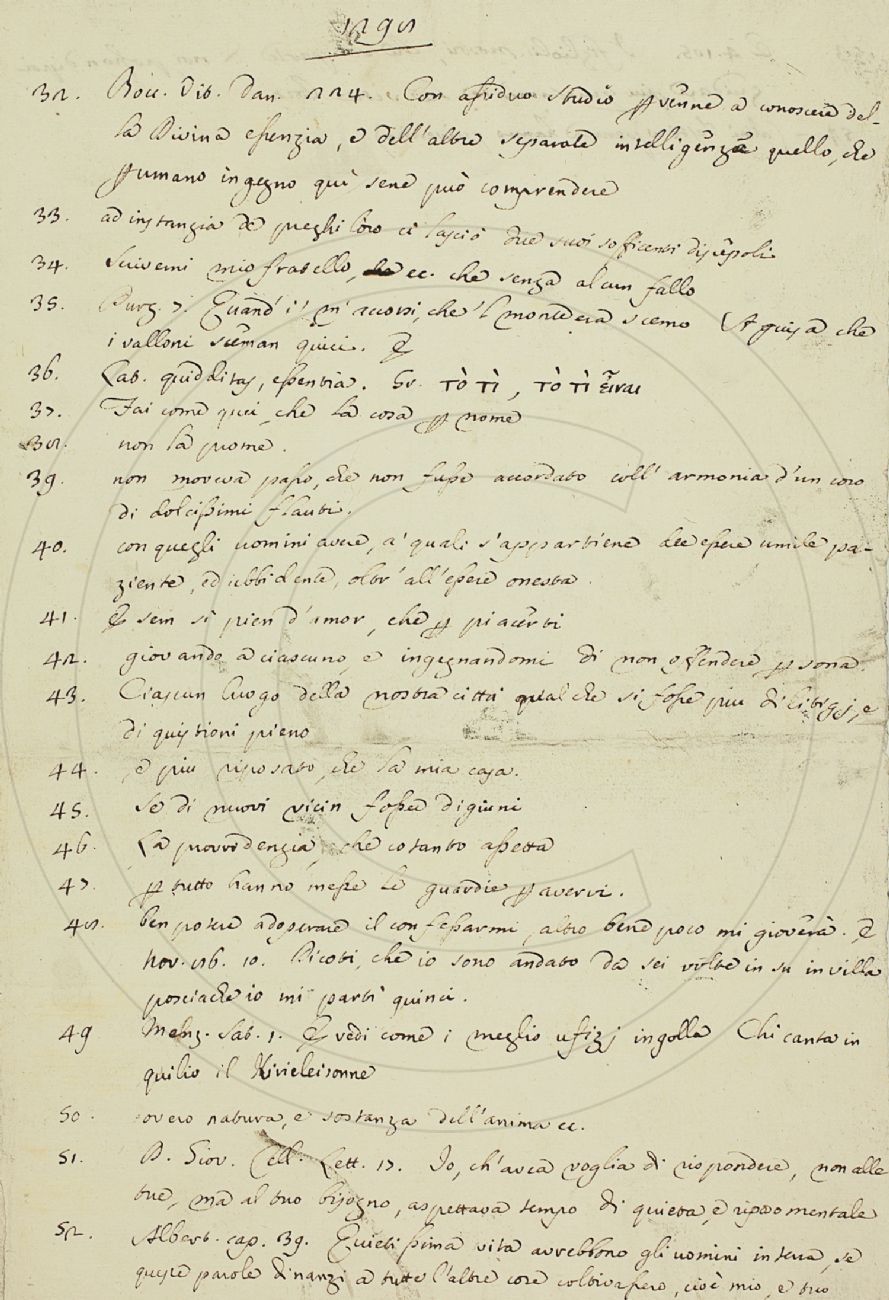 1298
32. Bocc. Vit. Dan. 224. Con assiduo studio pvenne a conoscere del-
la Divina essenzia, e dell'altre separate intelligenze quello, che
p umano ingegno qui sene può comprendere
33. ad instanzia de' preghi loro ci lasciò due suoi sofficenti discepoli
34. Scivemi mio fratello, ec. che senza alcun fallo
35. Purg. 7. Quand' i' m' accorsi, che 'l monte era scemo (A guisa che
i valloni sceman quici. E
36. Lat. quidditas, essentia. Gr. τὸ τὶ, τὸ τὶ εἶναι
37. Fai come quei, che la cosa p nome
38. non la prome.
39. non moveva passo, che non fusse accordato coll' armonia d'un coro
di dolcissimi flauti.
40. con quegli uomini avere, a' quali s'appartiene dee essere umile pa-
ziente, ed ubbidiente, oltr' all'essere onesta.
41. E sem sì pien d'amor, che p piacerti
42. giovando a ciascuno, e ingegnandomi di non offendere psona.
43. Ciascun luogo della nostra città qualche si fosse più di litigj, e
di quistioni pieno
44. è più riposato, che la mia casa.
45. Se di nuovi vicin fosser digiuni
46. La provvidenzia, che cotanto assetta
47. p tutto hanno messe le guardie p avervi.
48. ben potere adoperare il confessarmi, altro bene poco mi gioverà. E
nov. 86. 10. Dicoti, che io sono andato da sei volte in su in villa
posciachè io mi partì quinci.
49 Menz. Sat. 1. E vedi come i meglio ufizj ingolla Chi canta in
quilio il Kirieleisonne
50. overo natura, e sostanza dell'anima ec.
51. B. Giov. Cell. Lett. 17. Io, ch'avea voglia di rispondere, non alle
tue, ma al tuo bisogno, aspettava tempo di quieta, e riposo mentale
52. Albert. cap. 39. Quietissima vita avrebbono gli uomini in terra, se
queste parole dinanzi a tutte l'altre cose coltivassero, cioè mio, e tuo